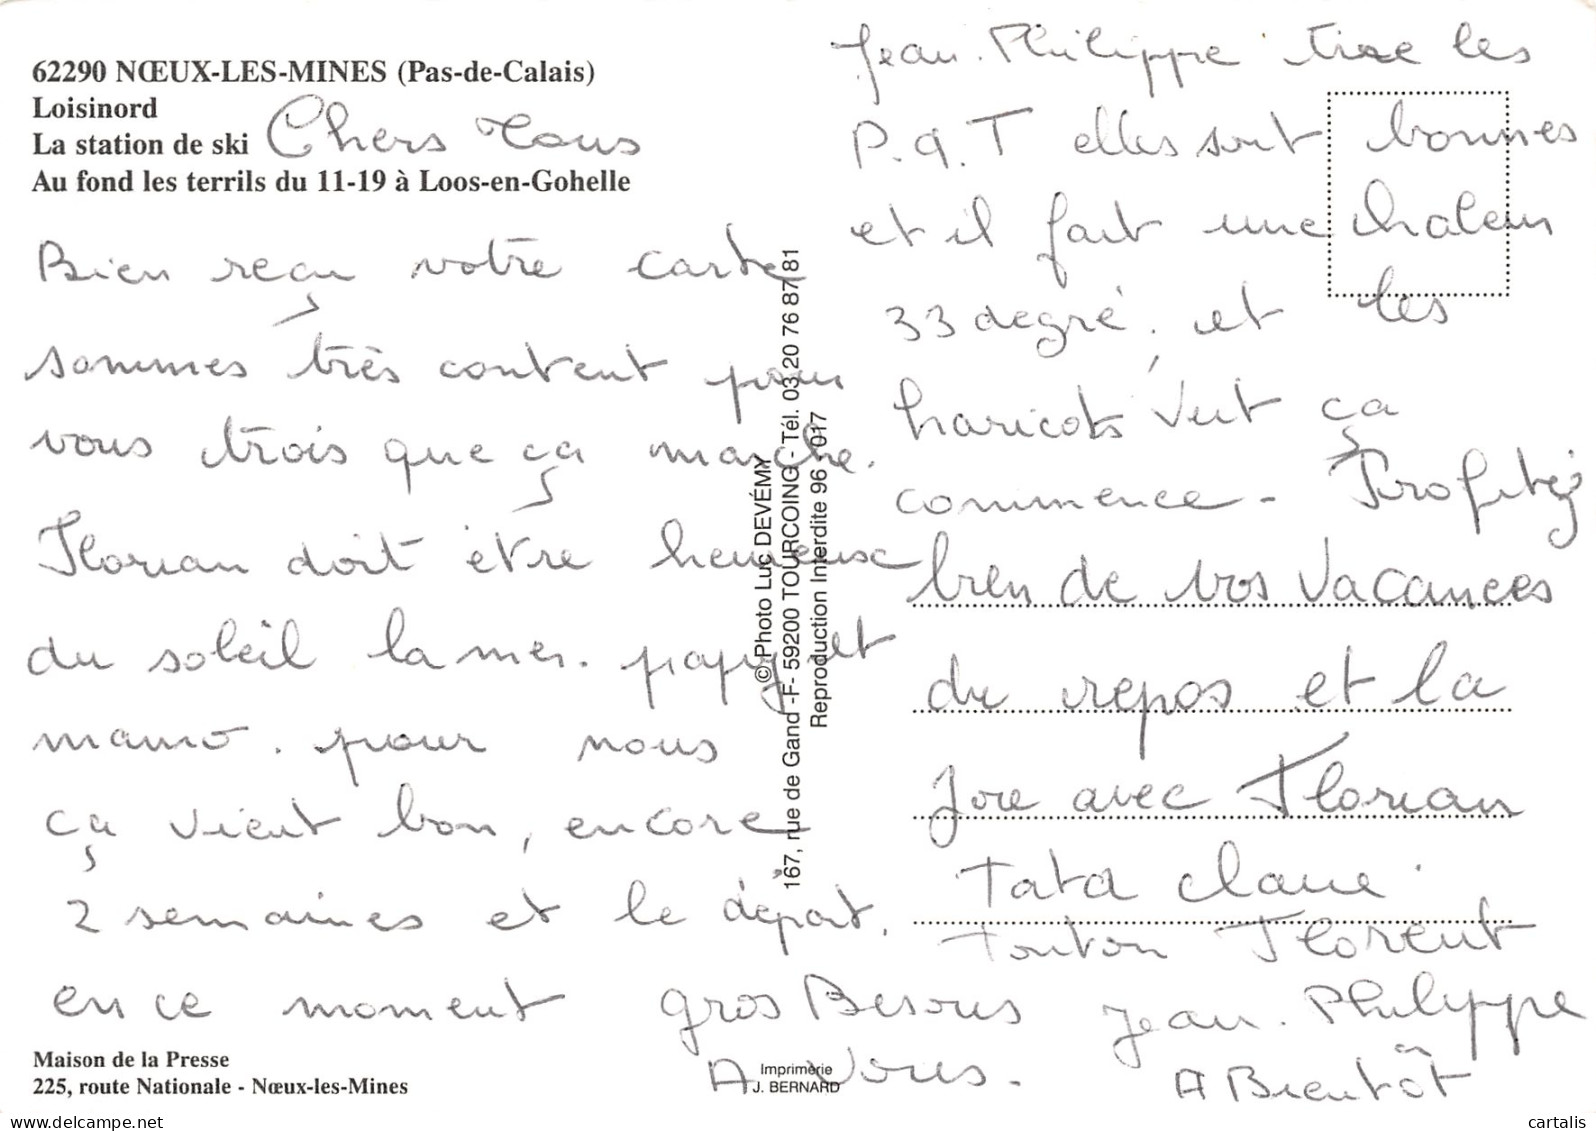 62290 NŒUX-LES-MINES (Pas-de-Calais)
Loisinord
La station de ski
Au fond les terrils du 11-19 à Loos-en-Gohelle
Chers Tous
Bien reçu votre carte
sommes très content pour
vous trois que ça marche.
Florian doit être heureuse
du soleil la mer. papy et
mamo. pour nous
ça vient bon, encore
2 semaines et le départ.
en ce moment
Jean-Philippe tire les
P.d T elles sont bonnes
et il fait une chaleur
33 degré, et les
haricots vert ça
commence - Profitez
bien de vos vacances
du repos et la
Joie avec Florian
Tata
Tonton Florent
Jean-Philippe
gros Besous
A Vous.
A Bientôt
© Photo Luc DEVÉMY
167, rue de Gand -F- 59200 TOURCOING - Tél. 03 20 76 87 81
Reproduction Interdite 96 / 017
Maison de la Presse
225, route Nationale - Nœux-les-Mines
Imprimerie
J. BERNARD
cartalis